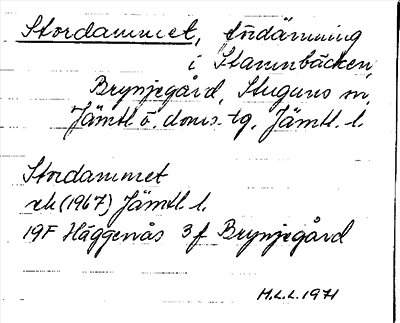 Stordammet, fördämning
i Stamnbäcken,
Brynjegård, Stuguns sn,
Jämtl. ö. doms. tg, Jämtl. l.
Stordammet
rk (1967) Jämtl. l.
19F Häggenås 3 f Brynjegård
H.L.L. 1971